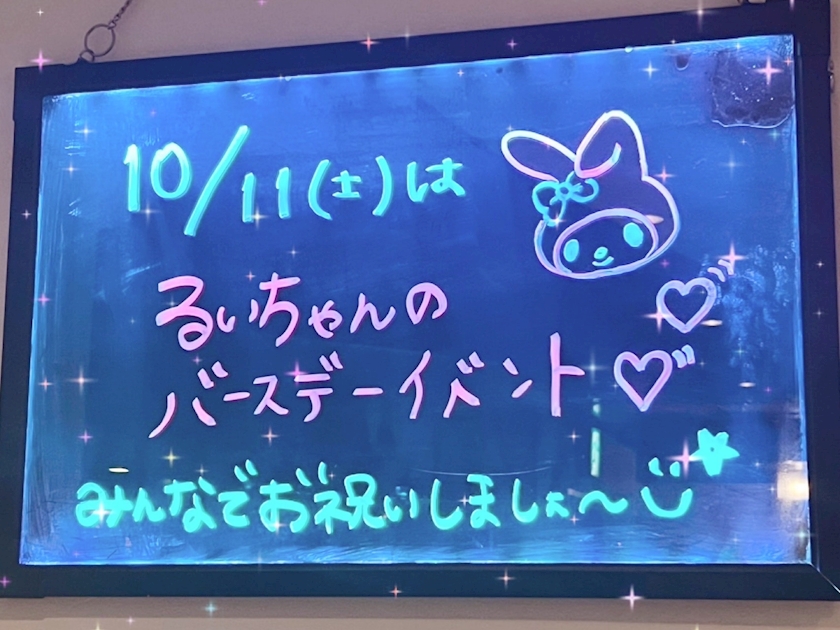 10/11(土)は
るいちゃんの
バースデーイベント
みんなでお祝いしましょ〜